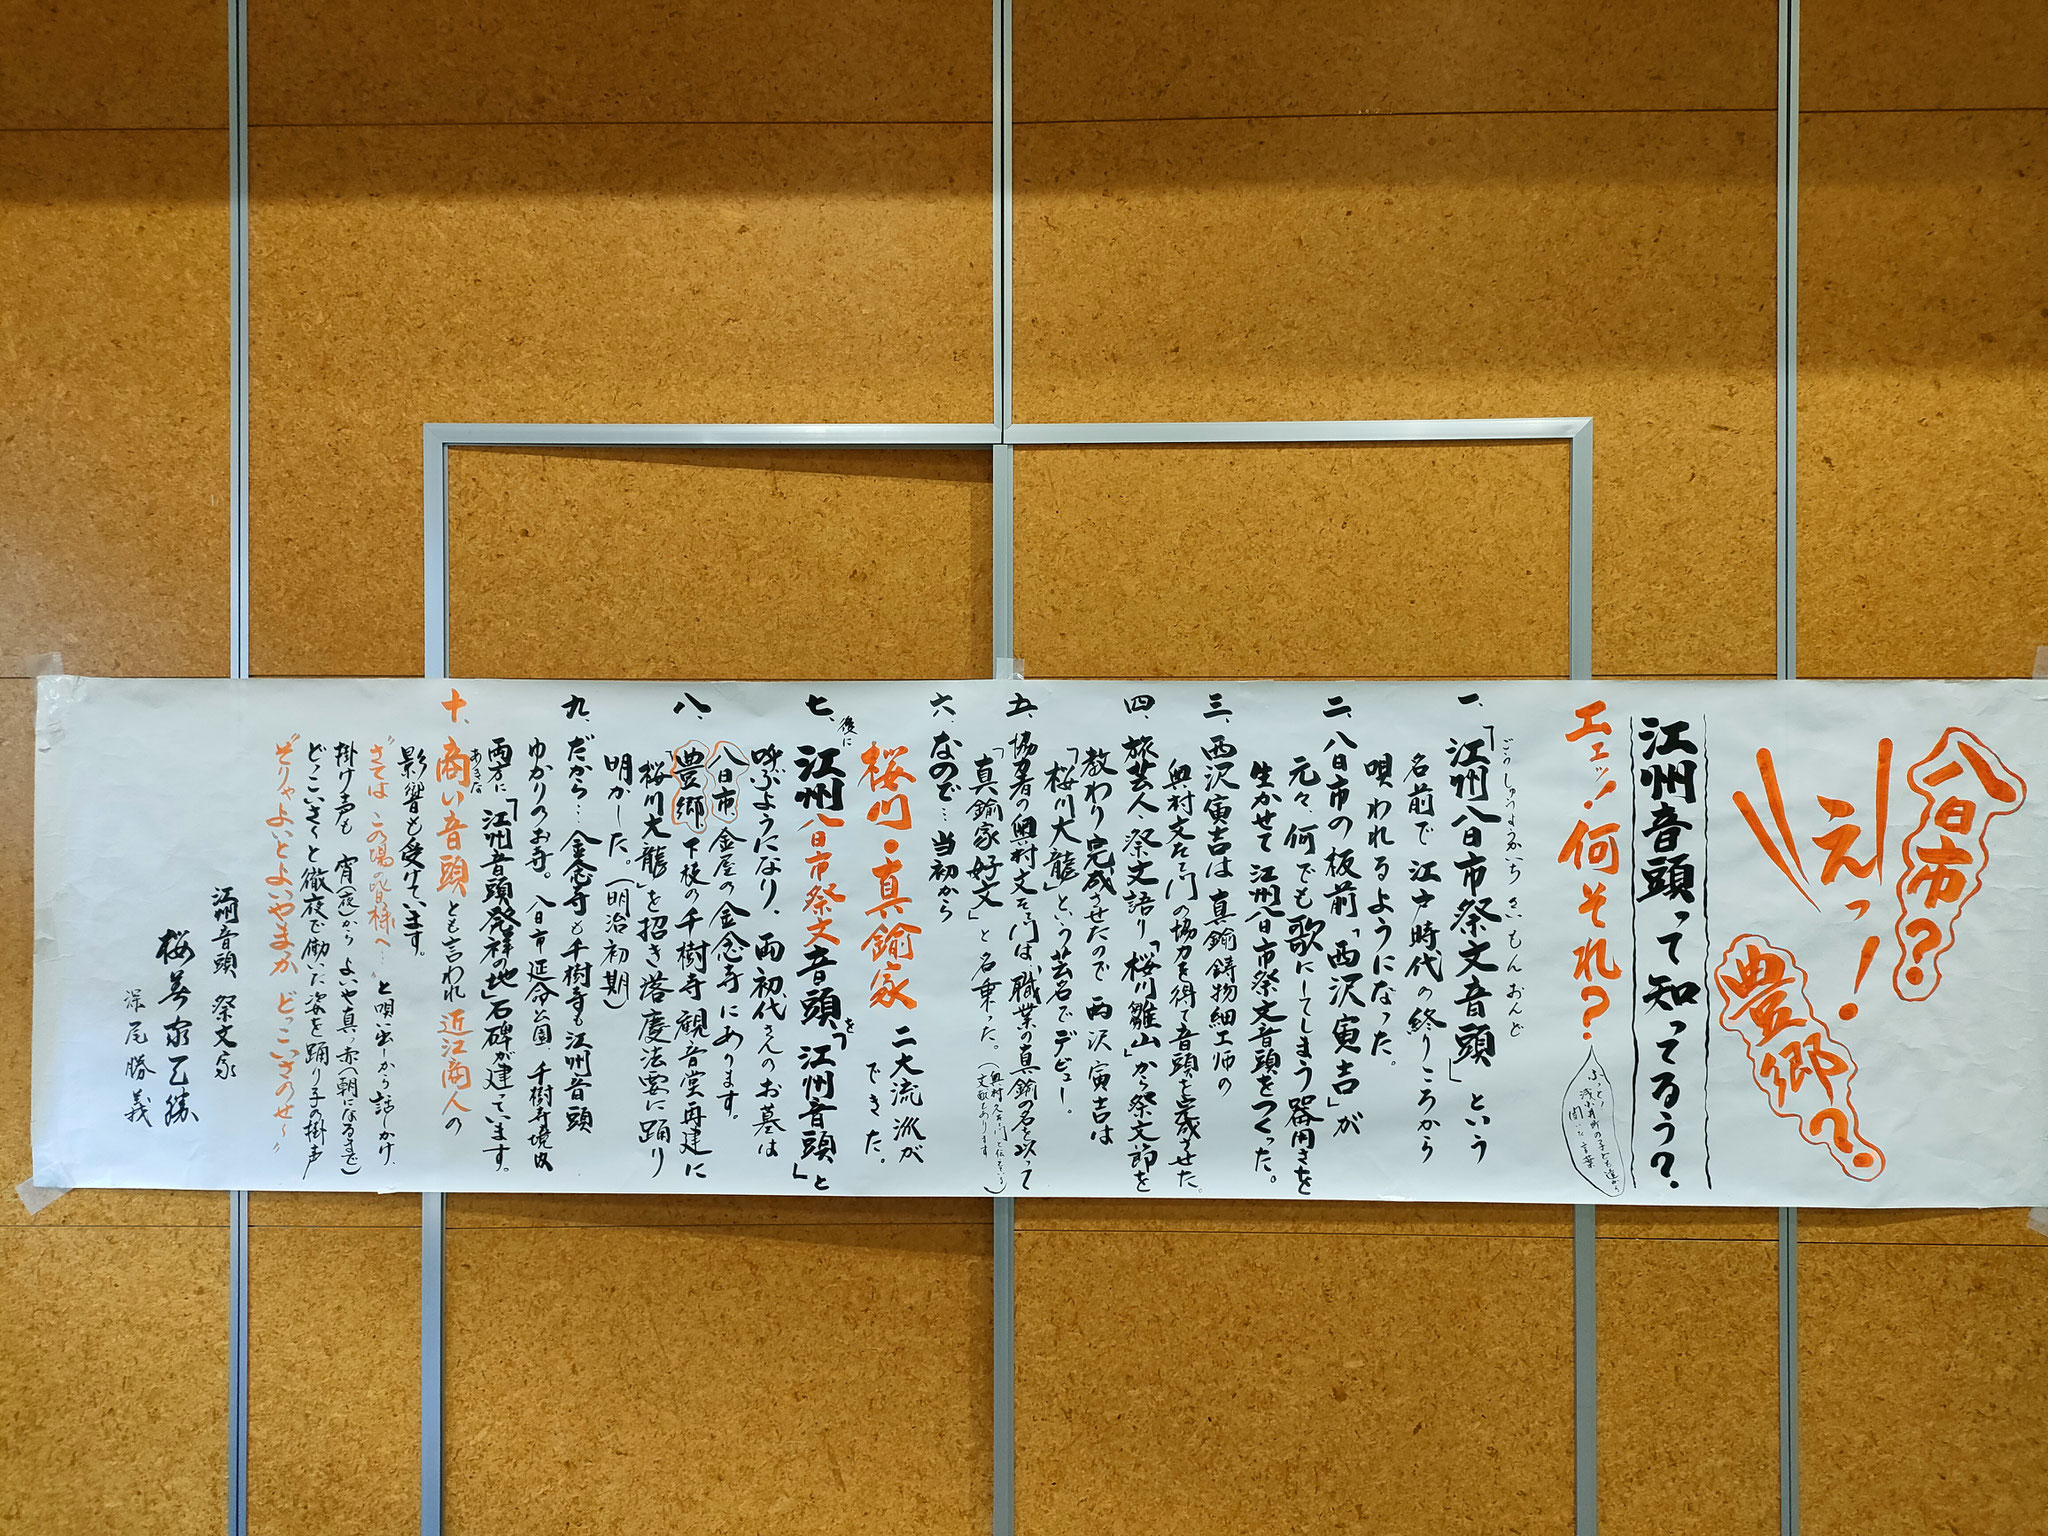 八日市？
えっ！
豊郷？
江州音頭って知ってるぅ？
エェッ！何それ？
ふっとつ
浅小井町の子ども達から
聞いた言葉
ごうしゅうようかいちさいもんおんど
一、「江州八日市祭文音頭」という
名前で江戸時代の終りころから
唄われるようになった。
二、八日市の板前「西沢寅吉」が
元々、何でも歌にしてしまう器用さを
生かせて江州八日市祭文音頭をつくった。
三、西沢寅吉は真鍮鋳物細工師の
奥村文左ヱ門の協力を得て音頭を完成させた。
四、旅芸人、祭文語り「桜川雛山」から祭文節を
教わり完成させたので西沢寅吉は
「桜川大龍」という芸名でデビュー。
五、協力者の奥村文左ヱ門は、職業の真鍮の名を以って
「真鍮家好文」と名乗った。
六、なので…当初から
桜川・真鍮家 二大流派が
できた。
七、後に
江州八日市祭文音頭を「江州音頭」と
呼ぶようになり、両初代さんのお墓は
八日市、金屋の金念寺にあります。
八、豊郷、下枝の千樹寺観音堂再建に
「桜川大龍」を招き落慶法要に踊り
明かした。(明治初期)
九、だから…金念寺も千樹寺も江州音頭
ゆかりのお寺。八日市延命公園、千樹寺境内
両方に「江州音頭発祥の地」石碑が建っています。
十、商い音頭とも言われ近江商人の
あきない
影響も受けています。
“さてはこの場の皆様へ…”と唄い出しから話しかけ、
掛け声も 宵(夜)からよいや真っ赤(朝になるまで)
どっこいさーと徹夜で働いた姿を踊り子の掛声
“そりゃよいとよいやまか どっこいさのせ〜”
江州音頭 祭文家
桜美家乙勝
深尾勝義